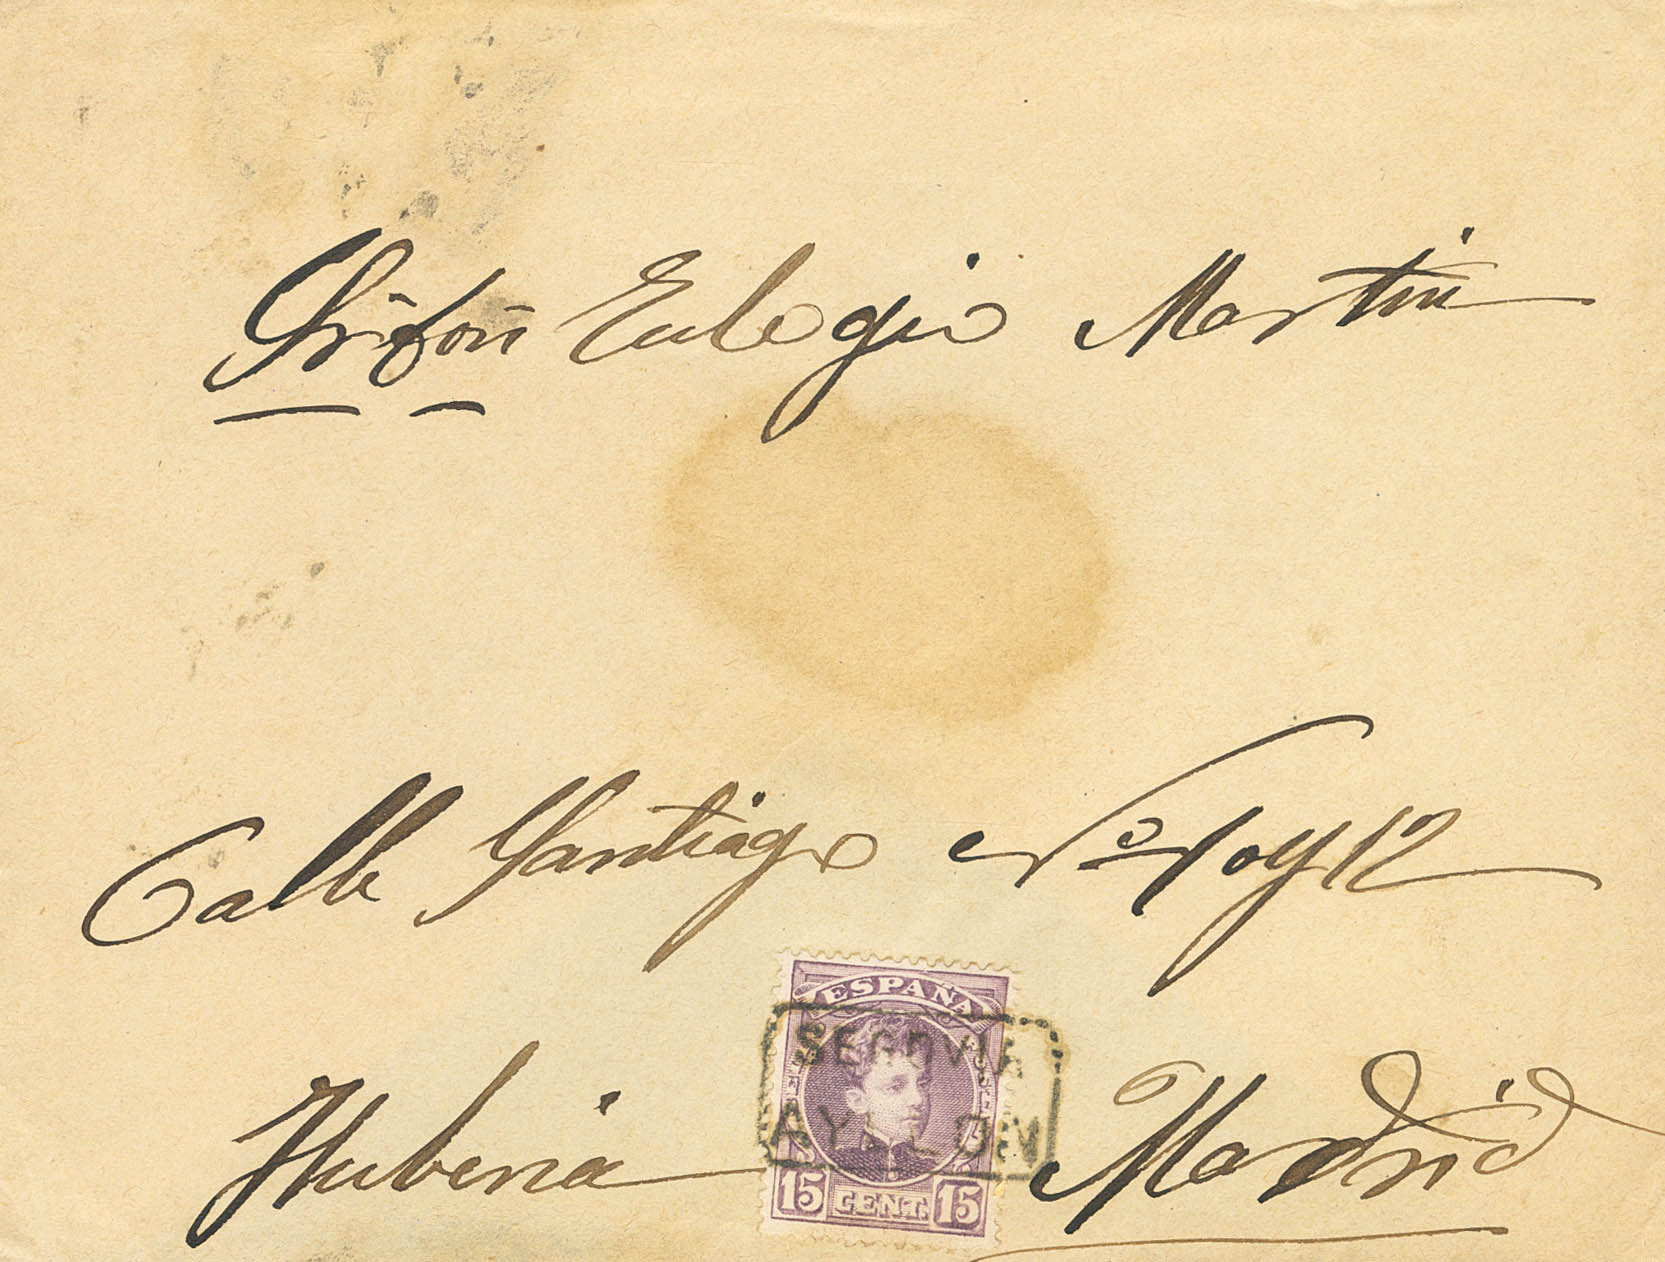 Sr Don Eulogio Martin
Calle Santiago Nº 10 y 12
ESPAÑA
SEGOVIA
AYLLON
Madrid
15 CENT. 15